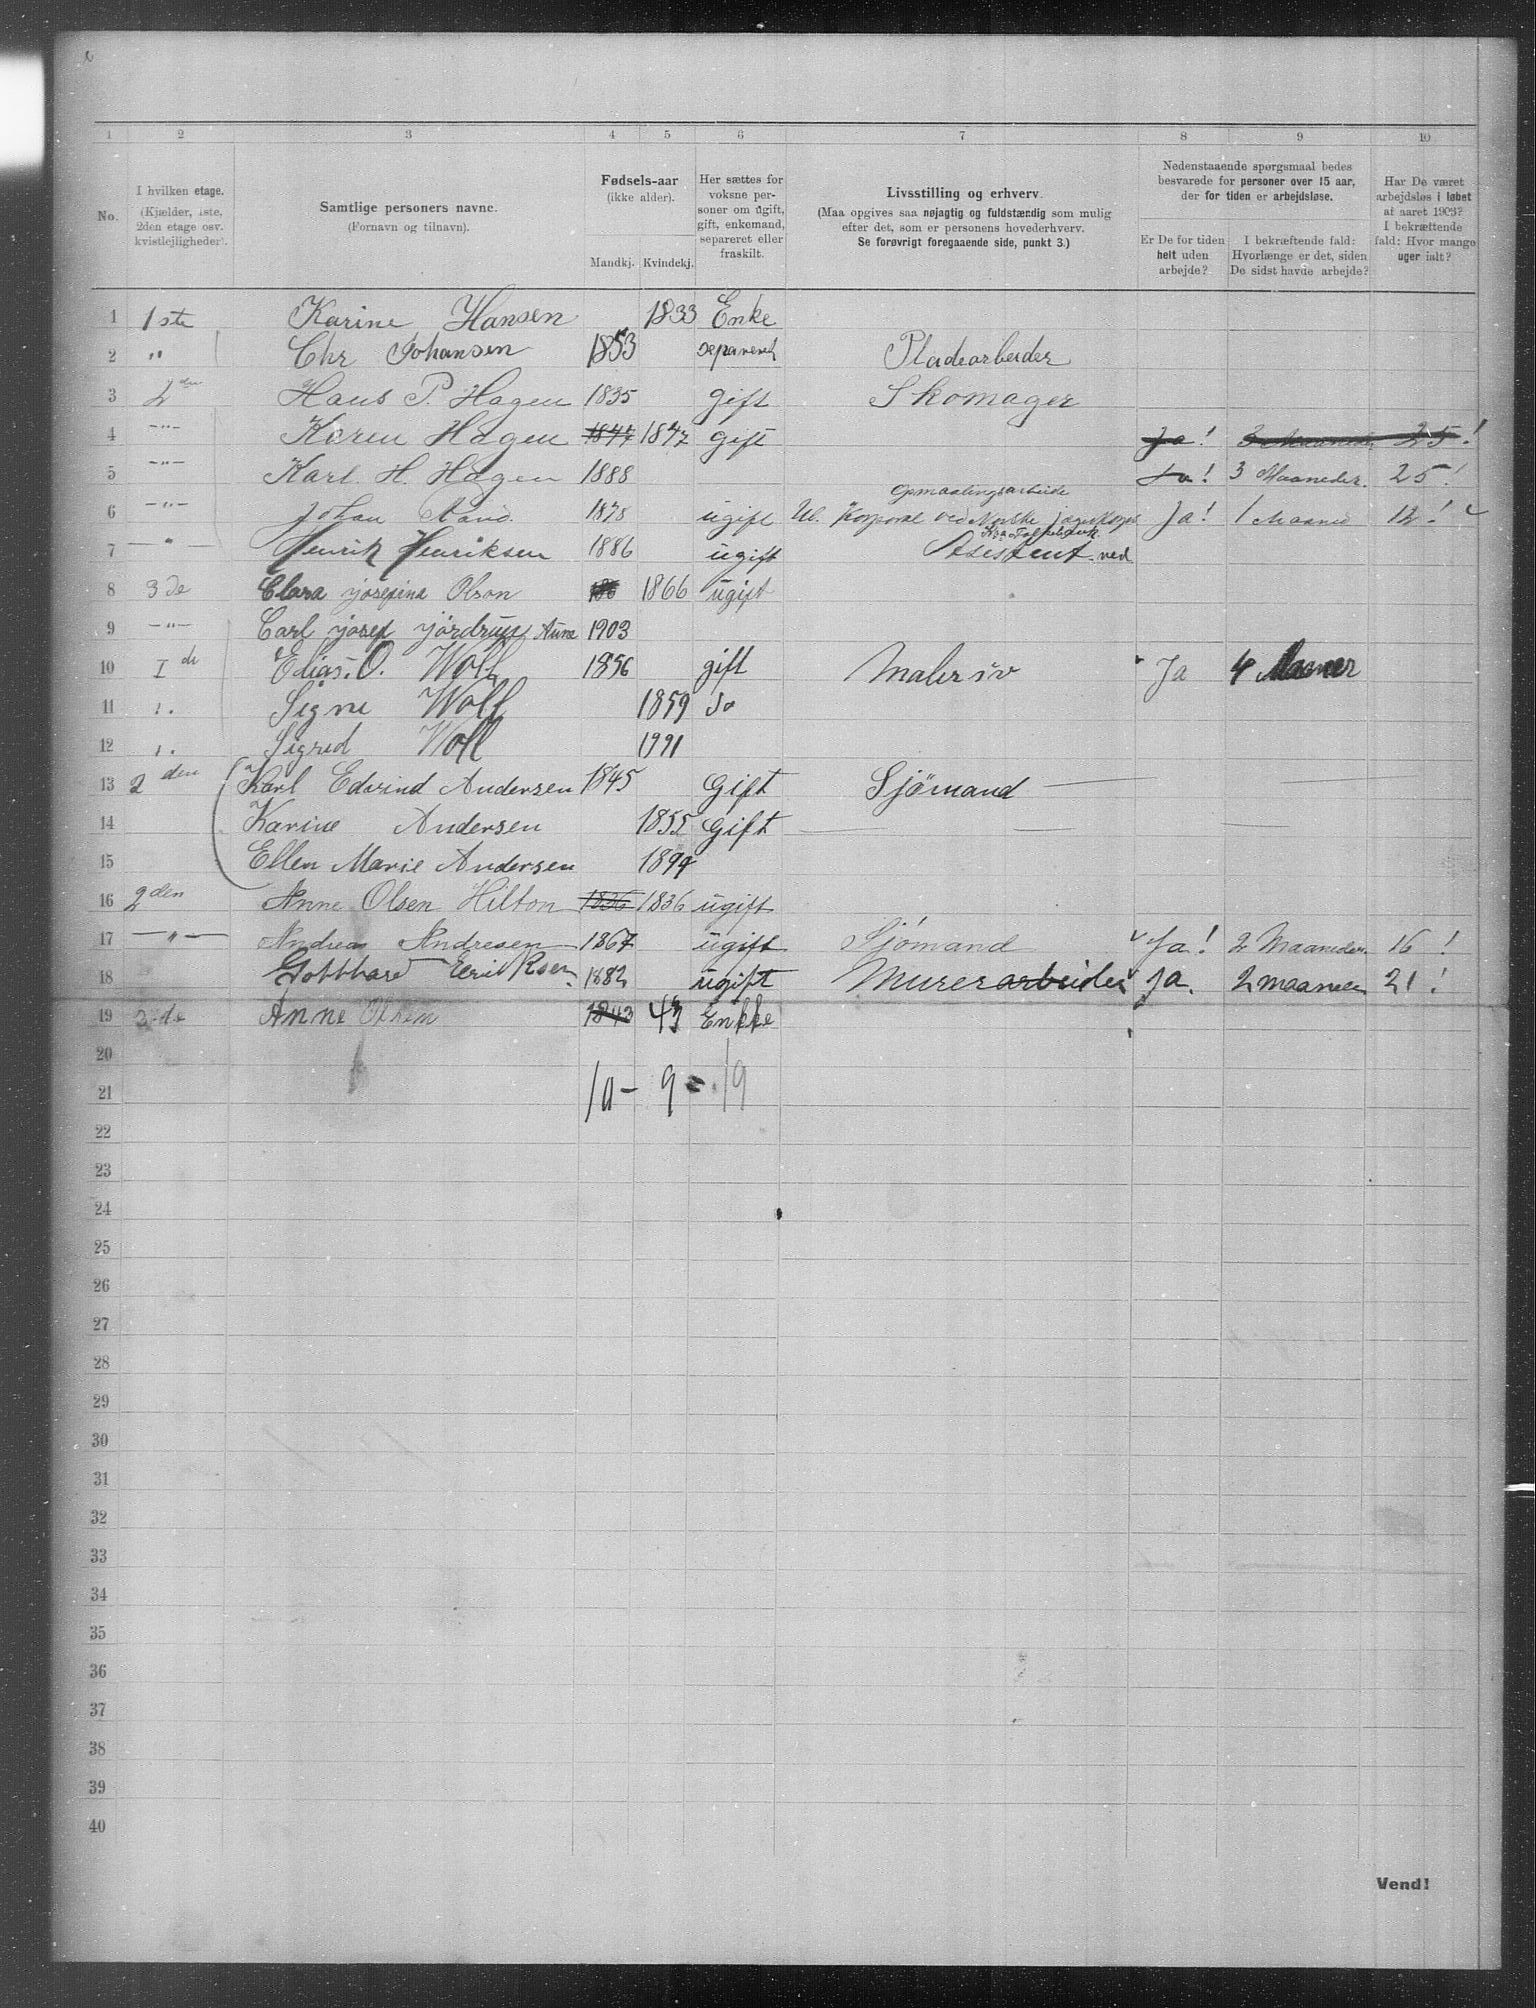 1 2 3 4 5 6 7 8 9 10
No.
I hvilken etage.
(Kjælder, 1ste,
2den etage osv.
kvistlejligheder).
Samtlige personers navne.
(Fornavn og tilnavn).
Fødsels-aar
(ikke alder).
Mandkj. Kvindekj.
Her sættes for
voksne per-
soner om ugift,
gift, enkemand,
separeret eller
fraskilt.
Livsstilling og erhverv.
(Maa opgives saa nøjagtig og fuldstændig som mulig
efter det, som er personens hovederhverv.
Se forøvrigt foregaaende side, punkt 3.)
Nedenstaaende spørgsmaal bedes
besvarede for personer over 15 aar,
der for tiden er arbejdsløse.
Er De for tiden
helt uden
arbejde?
I bekræftende fald:
Hvorlænge er det, siden
De sidst havde arbejde?
Har De været
arbejdsløs i løbet
af aaret 1903?
I bekræftende
fald: Hvor mange
uger ialt?
1 1ste Karine Hansen 1833 Enke
2 " Chr Johansen 1853 separeret Pladearbeider
3 2den Hans P. Hagen 1835 gift Skomager
4 -"- Karen Hagen 1847 1847 gift Ja! 3 Maaneder 25!
5 -"- Karl H. Hagen 1888 Ja! 3 Maaneder. 25!
Opmaalingsarbeide
6 -"- Johan 1878 ugift Korporal ved Norske Jægerkorps Ja! 1 Maaned 12!
7 -"- Henrik Henriksen 1886 ugift Assistent ved
8 3de Clara Josefina Olson 1866 ugift
9 -"- Carl Josef Aune 1903
10 I Elias. O. Woll 1856 gift Malersv Ja 4 Maaner
11 ". Signe Woll 1859 Do
12 ". Sigrud Woll 1991
13 2den Karl Edvind Andersen 1845 Gift Sjömand —
14 Karine Andersen 1855 Gift — — — —
15 Ellen Marie Andersen 1894
16 2den Anne Olsen Hilton 1836 1836 ugift
17 -"- Andreas Andresen 1867 ugift Sjömand Ja! 2 Maaneder. 16!
18 Gotthard Erikksen 1882 ugift Murerarbeider Ja. 2 maaneer 21!
19 3de Anne Olsen 1843 43 Enkke
20
10 - 9 = 19
21
22
23
24
25
26
27
28
29
30
31
32
33
34
35
36
37
38
39
40
Vend!